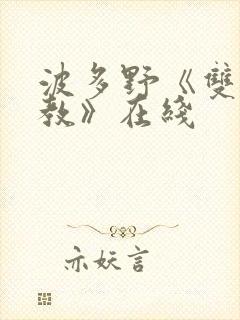 波多野《雙
教》在綫
亦妖言